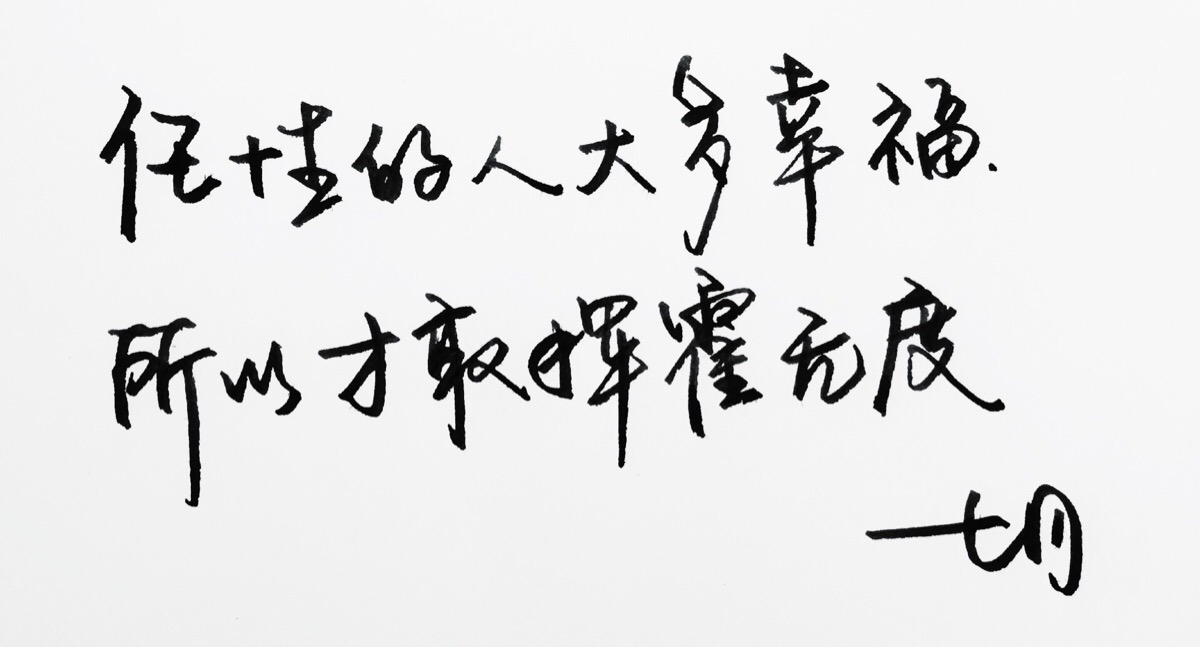 任性的人大多幸福.
所以才敢挥霍无度
七月